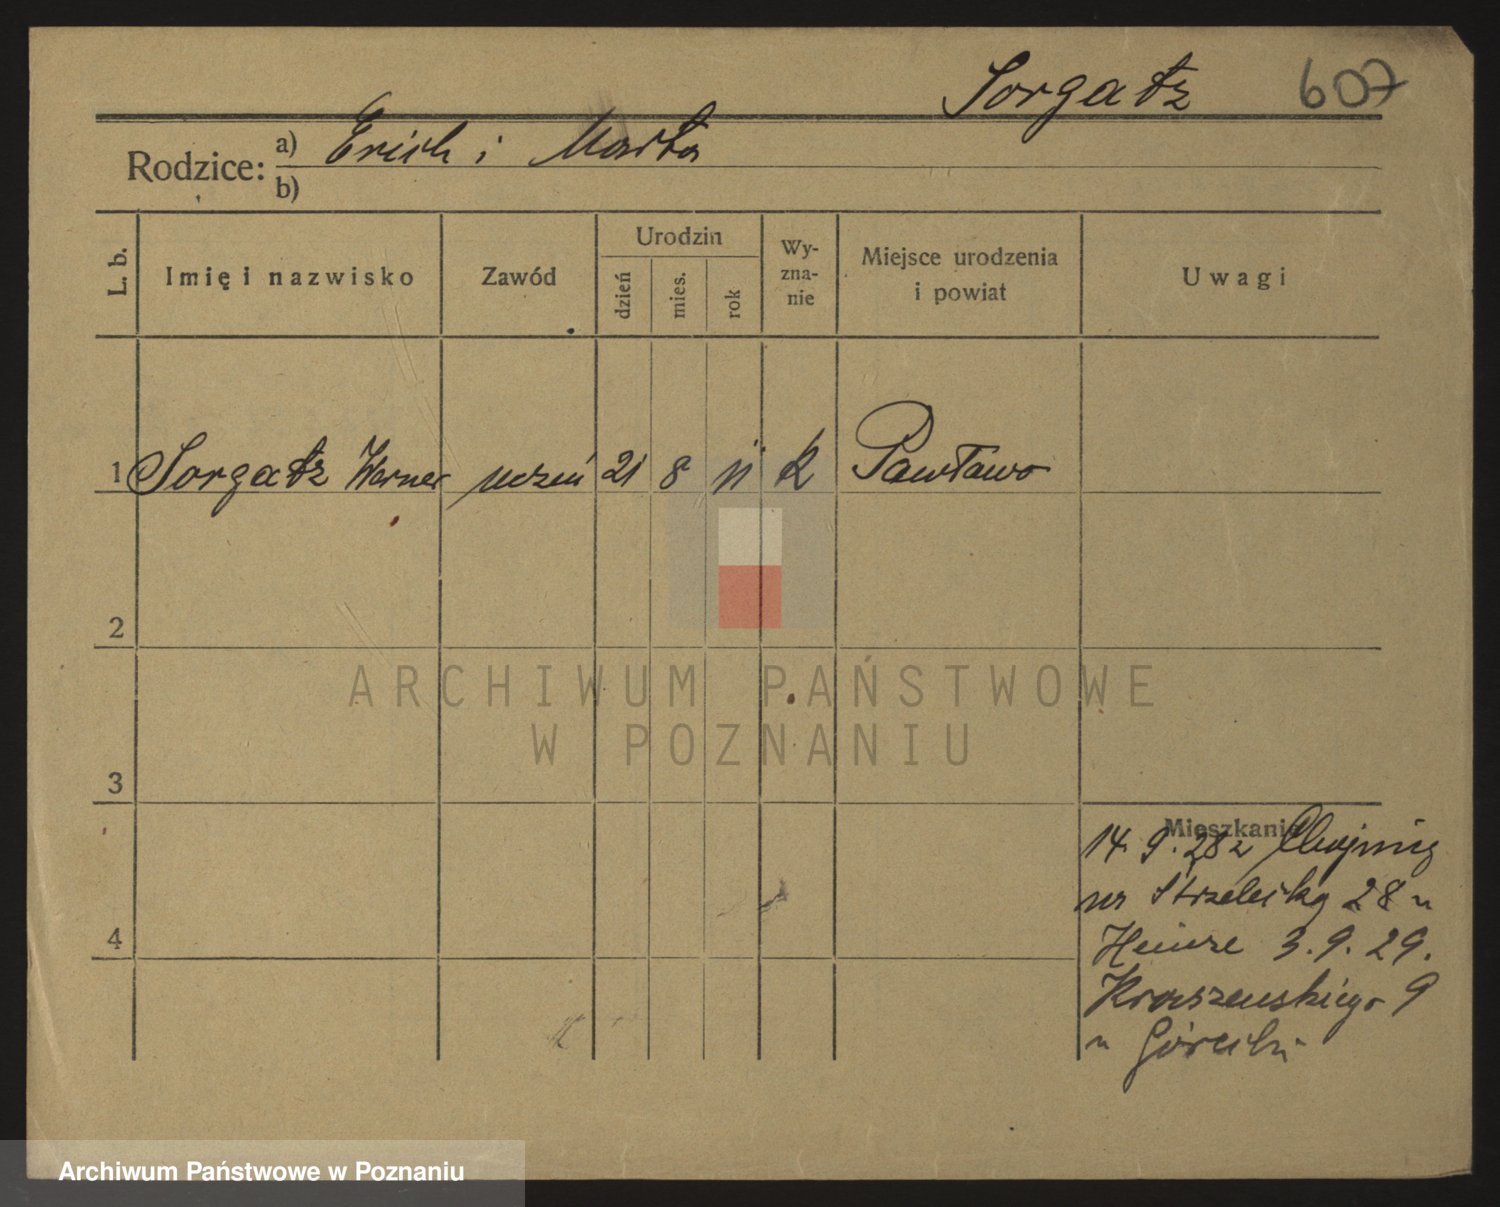 Sorgatz 607
Rodzice: a) Erich i Marta
b)
L. b. Imię i nazwisko Zawód Urodzin dzień mies. rok Wy-zna-nie Miejsce urodzenia i powiat Uwagi
1 Sorgatz Werner uczeń 21 8 11 k Pawłowo
2
3
Mieszkanie
14. 9. 28 z
ul Strzelecka 28 u
4
Heinze 3. 9. 29.
Kraszewskiego 9
u
ARCHIWUM PAŃSTWOWE
W POZNANIU
Archiwum Państwowe w Poznaniu